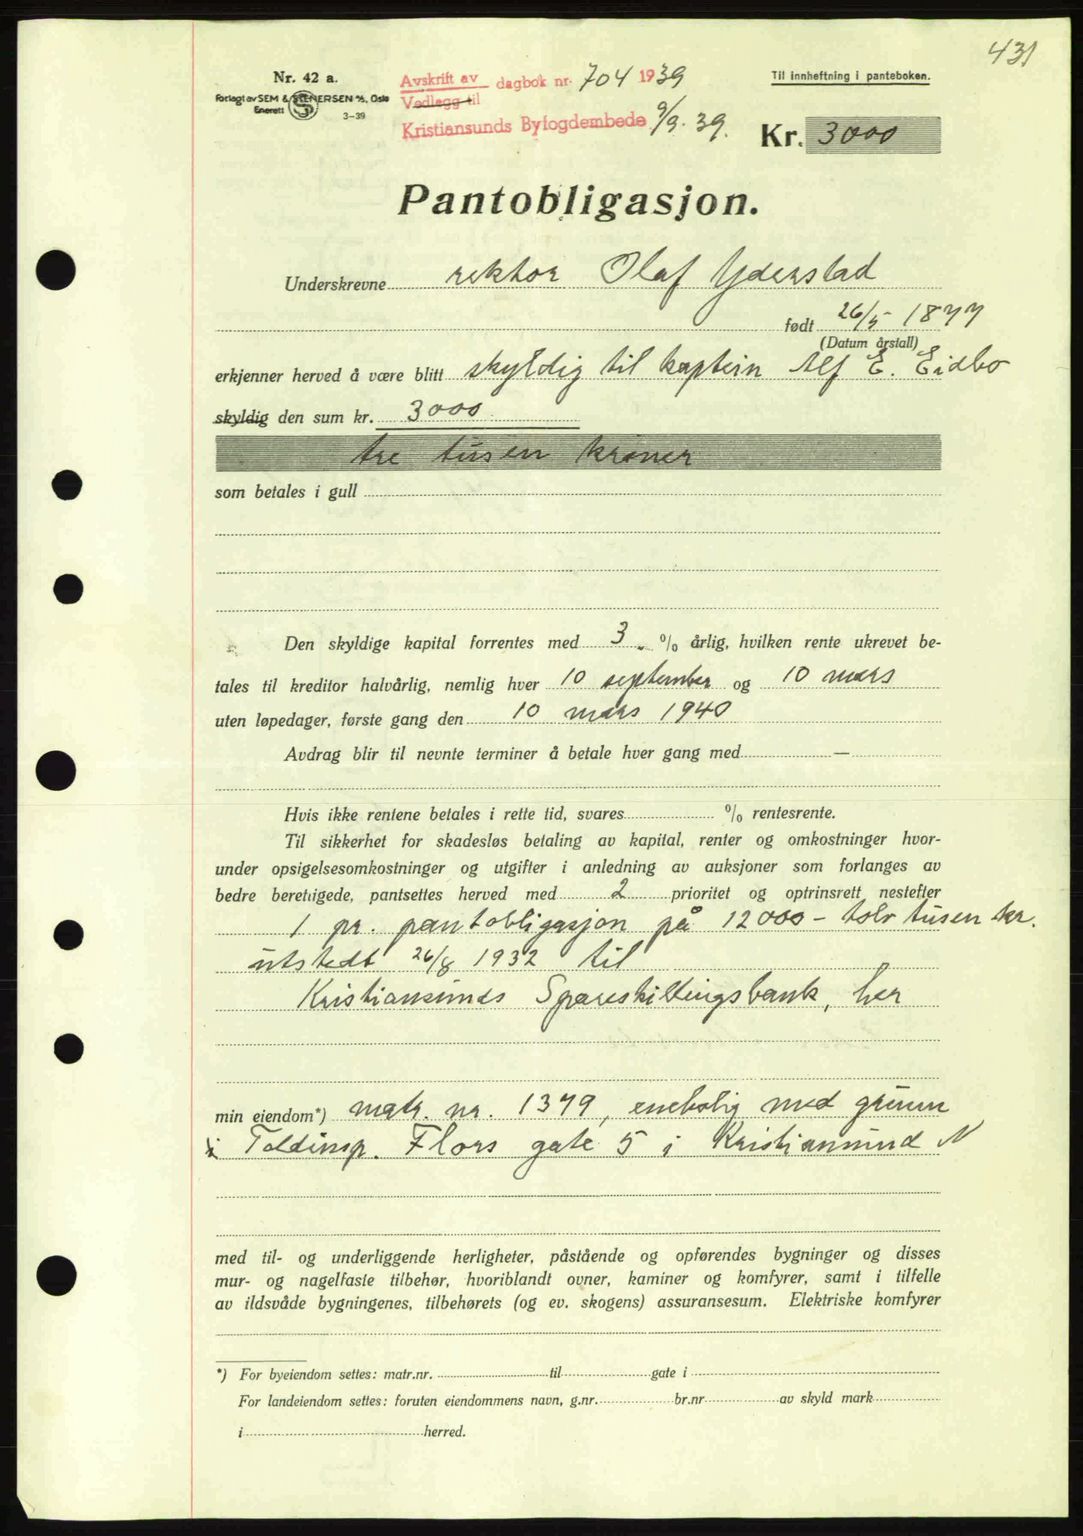 431
Nr. 42 a.
Forlagt av SEM & STENERSEN A/S, Oslo
Enerett
3-39
Avskrift av dagbok nr. 704 1939
Vedlegg til
Kristiansunds Byfogdembede 9/9. 39.
Til innheftning i panteboken.
Kr. 3000
Pantobligasjon.
Underskrevne rektor Olaf Yderstad
født 26/5 1877
(Datum årstall)
erkjenner herved å være blitt skyldig til kaptein Alf E. Eidbo
skyldig den sum kr. 3000
tre tusen kroner
som betales i gull
Den skyldige kapital forrentes med 3 % årlig, hvilken rente ukrevet be-
tales til kreditor halvårlig, nemlig hver 10 september og 10 mars
uten løpedager, første gang den 10 mars 1940
Avdrag blir til nevnte terminer å betale hver gang med —
Hvis ikke rentene betales i rette tid, svares % rentesrente.
Til sikkerhet for skadesløs betaling av kapital, renter og omkostninger hvor-
under opsigelsesomkostninger og utgifter i anledning av auksjoner som forlanges av
bedre berettigede, pantsettes herved med 2 prioritet og optrinsrett nestefter
1 pr. pantobligasjon på 12000 - tolv tusen kr.
utstedt 26/8 1932 til
Kristiansunds Spareskillingsbank, her
min eiendom*) matr. nr. 1379, enebolig med grunn
i Toldinsp. Flors gate 5 i Kristiansund N
med til- og underliggende herligheter, påstående og opførendes bygninger og disses
mur- og nagelfaste tilbehør, hvoriblandt ovner, kaminer og komfyrer, samt i tilfelle
av ildsvåde bygningenes, tilbehørets (og ev. skogens) assuransesum. Elektriske komfyrer
*) For byeiendom settes: matr.nr. til gate i
For landeiendom settes: foruten eiendommens navn, g.nr. br.nr av skyld mark
i herred.